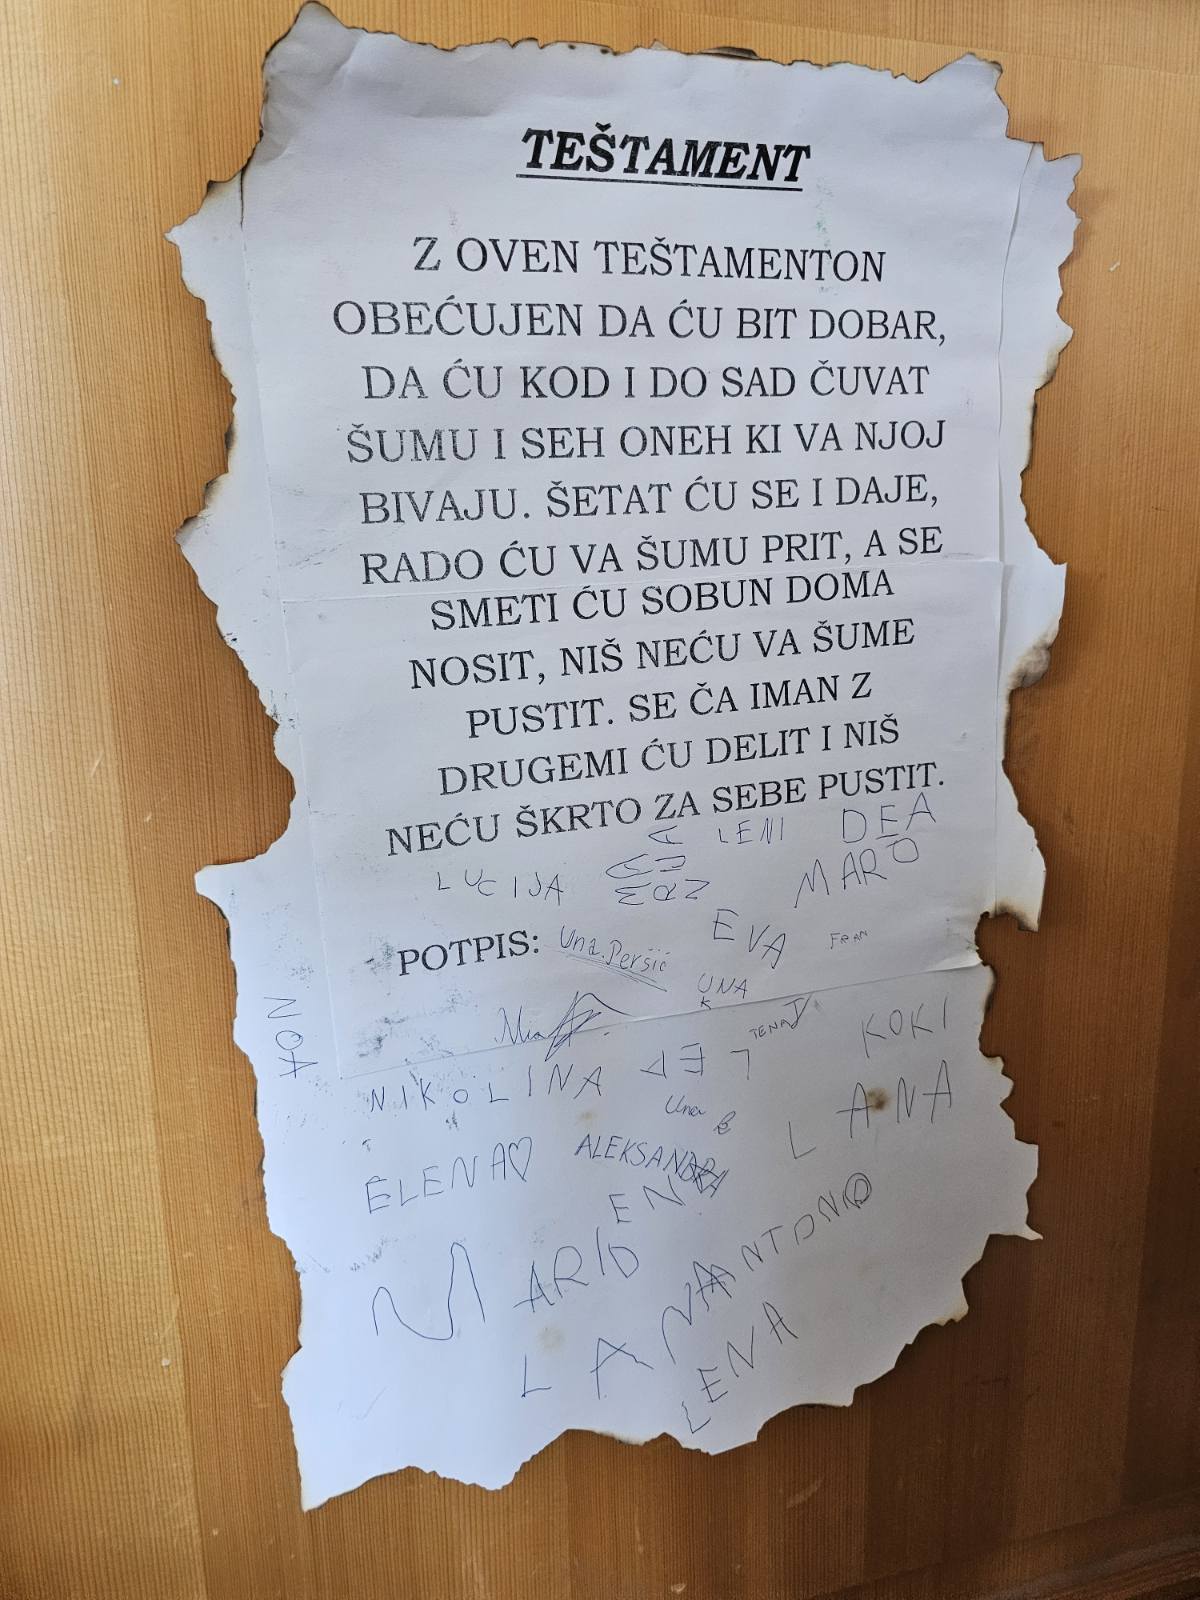 TEŠTAMENT
Z OVEN TEŠTAMENTON
OBEĆUJEN DA ĆU BIT DOBAR,
DA ĆU KOD I DO SAD ČUVAT
ŠUMU I SEH ONEH KI VA NJOJ
BIVAJU. ŠETAT ĆU SE I DAJE,
RADO ĆU VA ŠUMU PRIT, A SE
SMETI ĆU SOBUN DOMA
NOSIT, NIŠ NEĆU VA ŠUME
PUSTIT. SE ČA IMAN Z
DRUGEMI ĆU DELIT I NIŠ
NEĆU ŠKRTO ZA SEBE PUSTIT.
LENI DEA
LUCIJA MARO
EVA FRAN
POTPIS: Una Peršić
UNA
K
NOA
Mia
TENA
KOKI
NIKOLINA LEA
Una B
LANA
ELENA♡ ALEKSANDRA
MARIO
ANTONIO
LANA
LENA